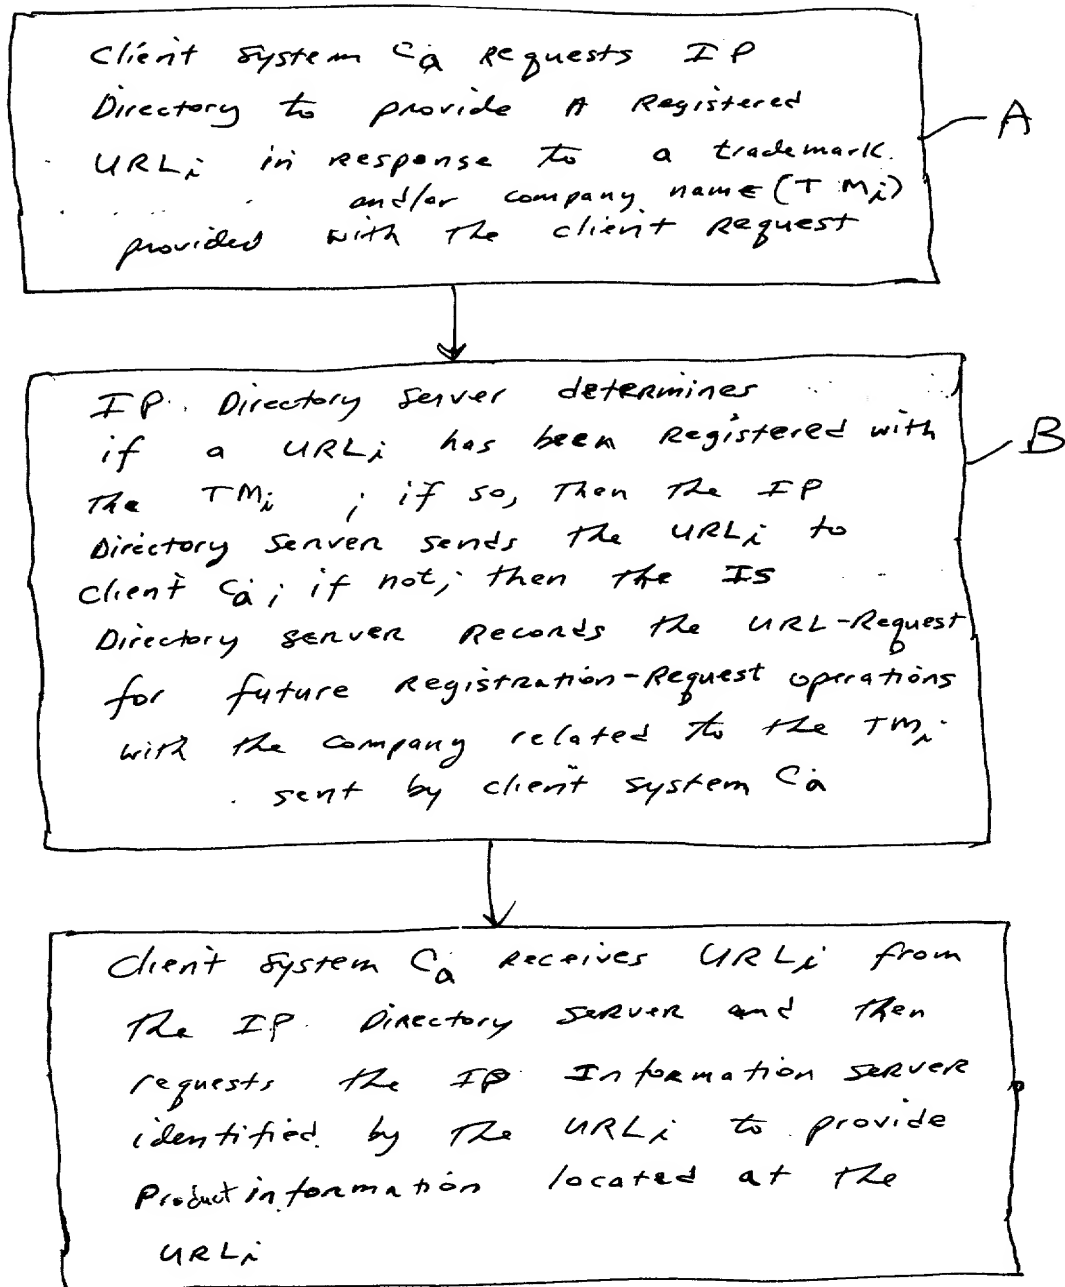 Client System Ca Requests IP
Directory to provide A Registered
URLi in Response to a trademark
and/or company name (TMi)
provided with the client Request
A
IP Directory Server determines
if a URLi has been Registered with
the TMi ; if so, Then the IP
Directory Server sends the URLi to
Client Ca; if not, then the IS
Directory Server Records the URL-Request
for future Registration-Request operations
with the company related to the TMi
sent by client system Ca
B
Client System Ca Receives URLi from
The IP Directory Server and Then
requests the IP Information Server
identified by The URLi to provide
Product information located at the
URLi